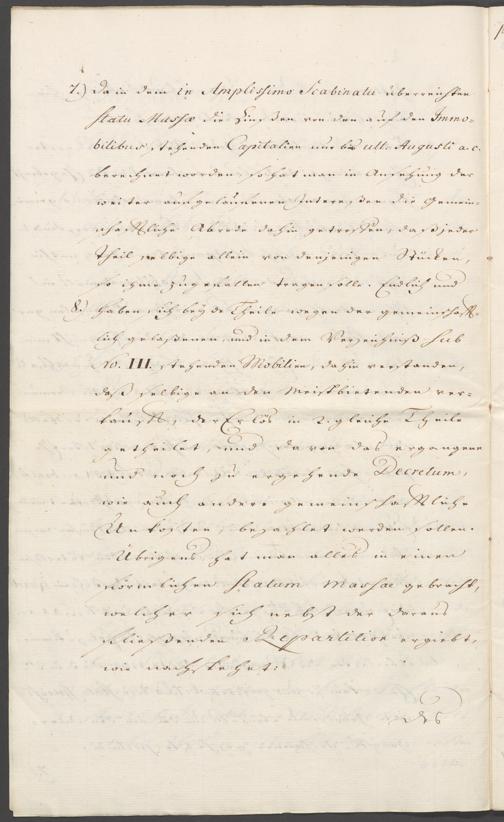 7.) Da in dem in Amplissimo Scabinatu überreichten
Statu Massæ die Zinßen von den auf den Immo-
bilibus stehenden Capitalien nur bis ult. Augusti a. c.
berechnet worden, so hat man in Ansehung der
weiter aufgelaufenen Interessen die Gemein-
schaftliche Abrede dahin getroffen, daß jeder
Theil selbige allein von denjenigen Stücken,
so ihme zugefallen tragen solle. Endlich und
8.) haben sich beyde Theile wegen der gemeinschafft-
lich gelaßenen, und in dem Verzeichniß sub
No. III. stehenden Mobilien, dahin verstanden,
daß selbige an den Meistbietenden ver-
kauft, der Erlös in 2 gleiche Theile
getheilet, und davon das ergangene
und noch zu ergehende Decretum,
wie auch andere gemeinschaftliche
Unkosten, bezahlet werden sollen.
Übrigens hat man alles in einen
förmlichen Statum Massae gebracht,
welcher sich nebst der daraus
fließenden Repartition ergiebt,
wie nachstehet: